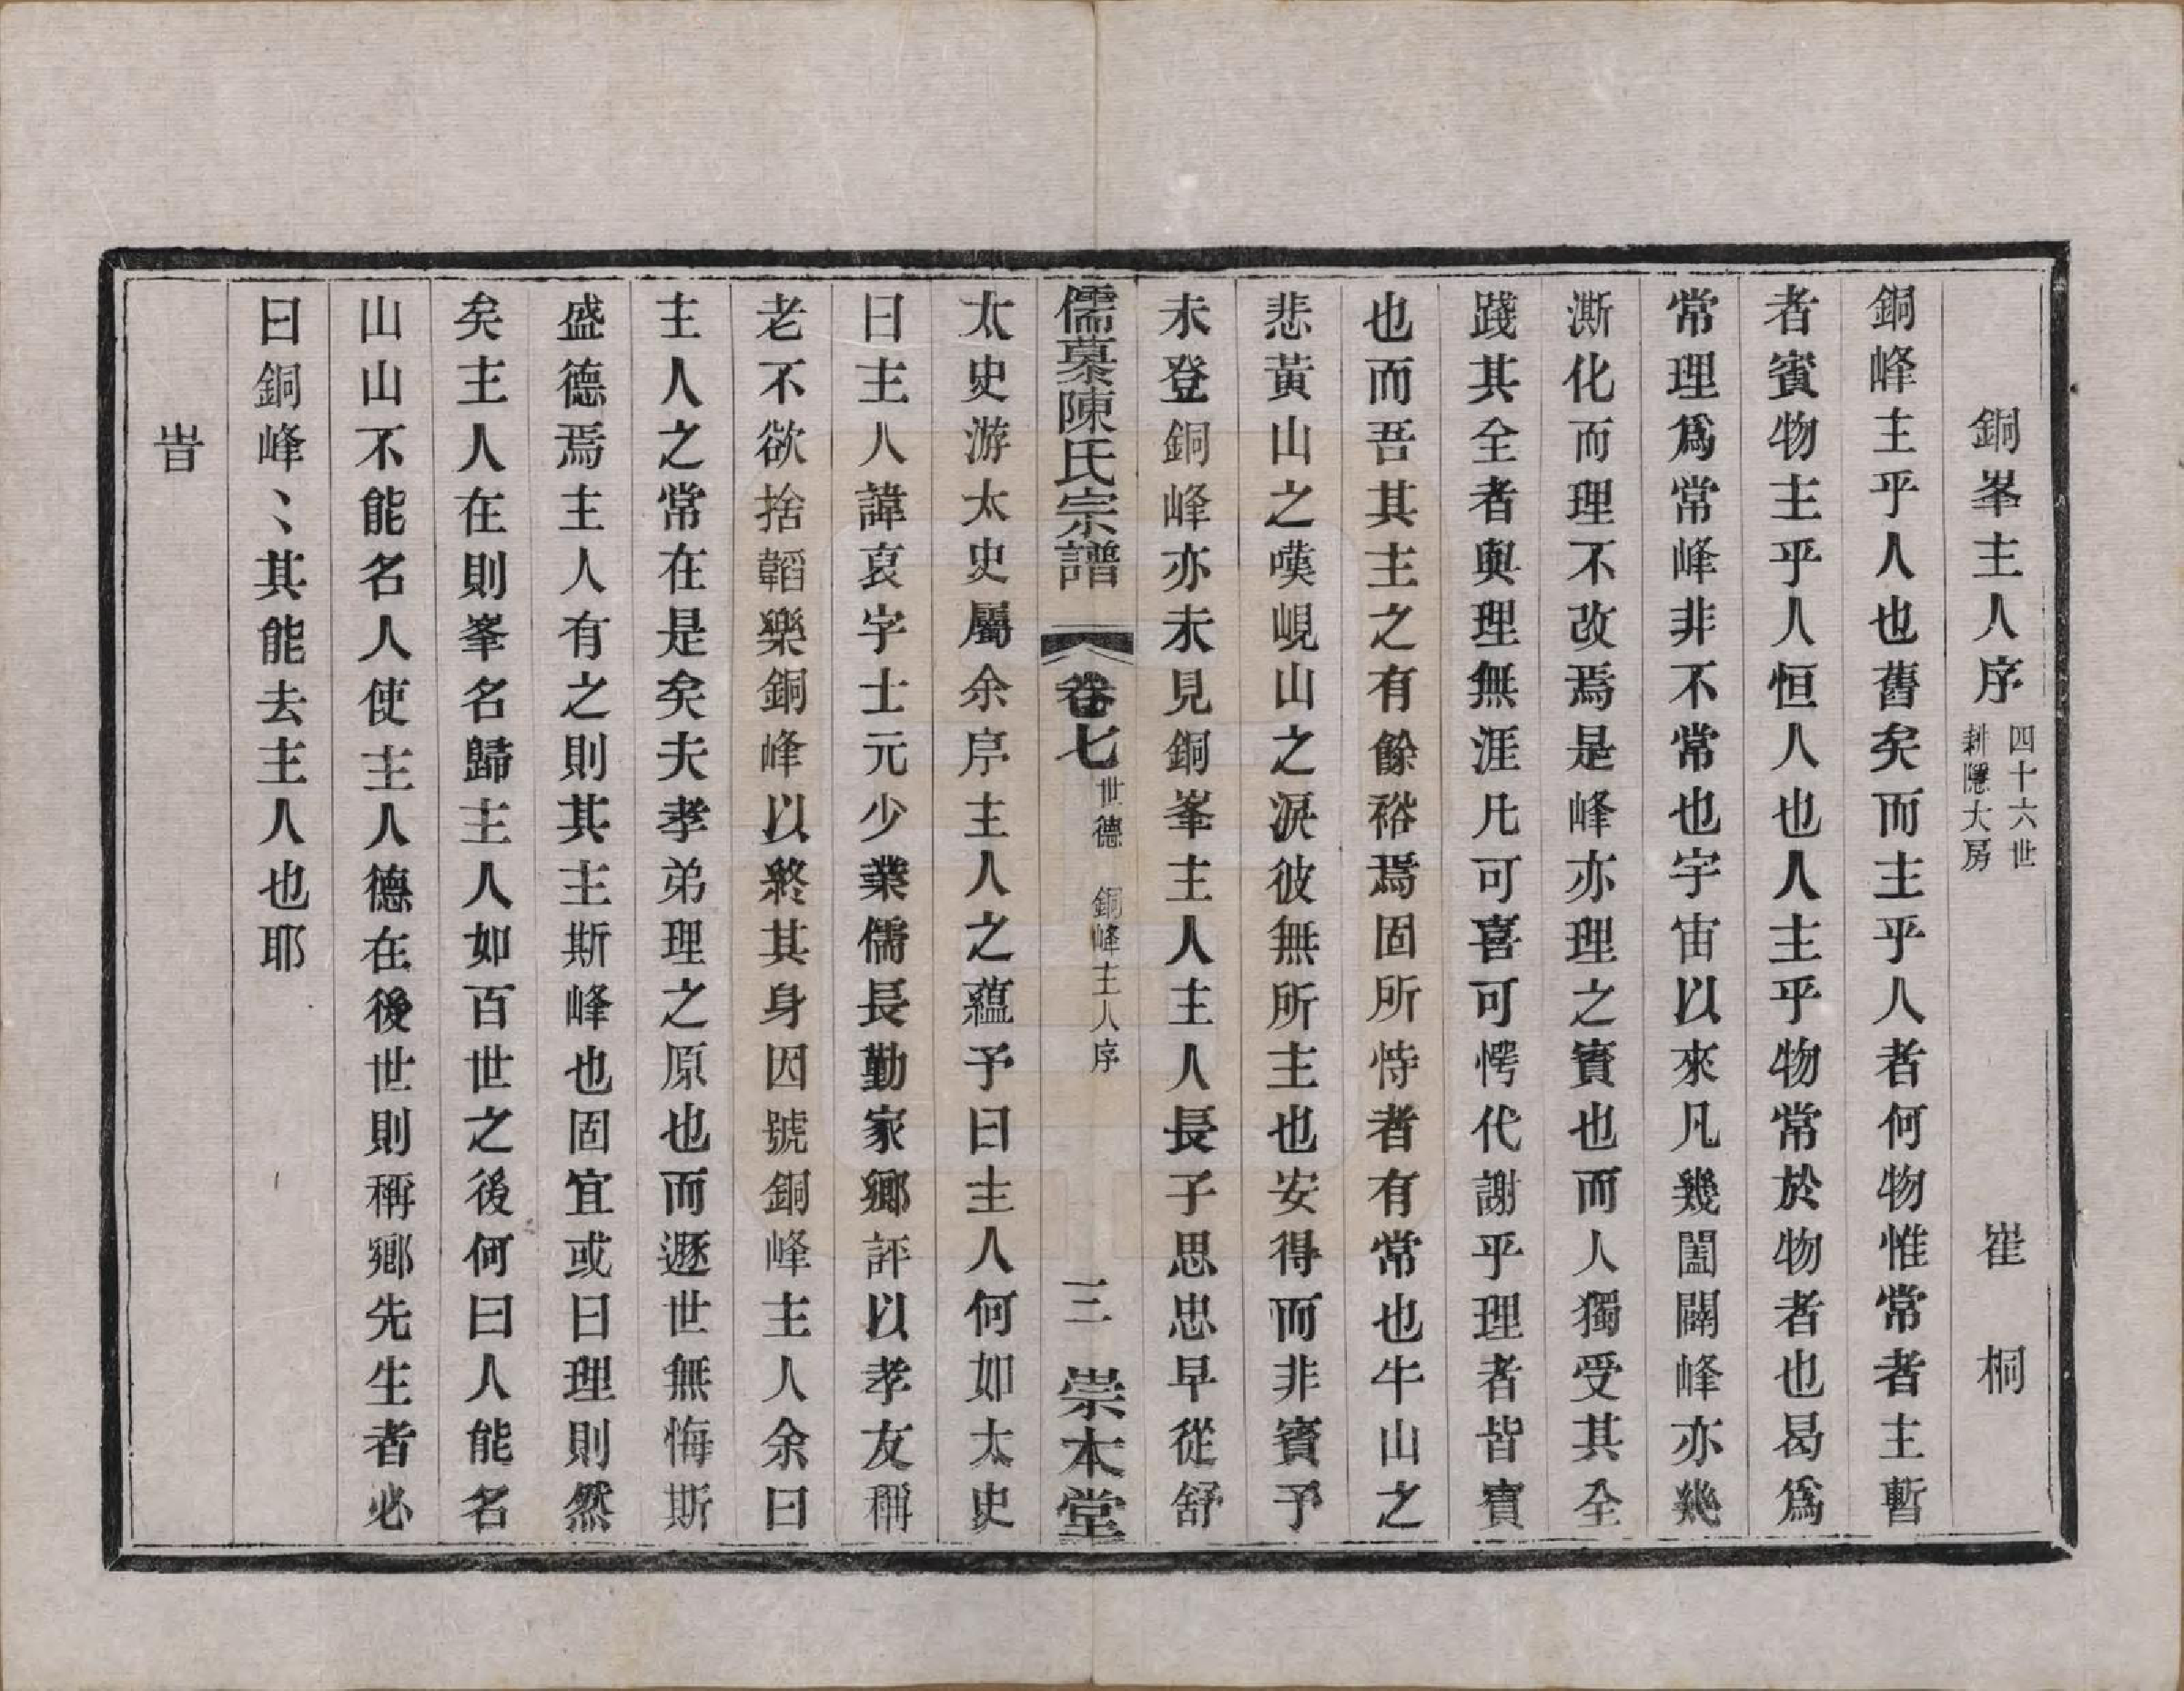 銅峯主人序 四十六世 耕隱大房 崔桐
銅峰主乎人也舊矣而主乎人者何物惟常者主暫
者賓物主乎人恒人也人主乎物常於物者也曷為
常理為常峰非不常也宇宙以來凡幾闔闢峰亦幾
澌化而理不改焉是峰亦理之賓也而人獨受其全
踐其全者與理無涯凡可喜可愕代謝乎理者皆賓
也而吾其主之有餘裕焉固所恃者有常也牛山之
悲黃山之嘆峴山之淚彼無所主也安得而非賓予
未登銅峰亦未見銅峯主人主人長子思忠早從舒
儒慕陳氏宗譜 卷七 世德 銅峰主人序 三 崇本堂
太史游太史屬余序主人之蘊予曰主人何如太史
曰主人諱哀字士元少業儒長勤家鄉評以孝友稱
老不欲捨韜樂銅峰以終其身因號銅峰主人余曰
主人之常在是矣夫孝弟理之原也而遯世無悔斯
盛德焉主人有之則其主斯峰也固宜或曰理則然
矣主人在則峯名歸主人如百世之後何曰人能名
山山不能名人使主人德在後世則稱鄉先生者必
曰銅峰〻其能去主人也耶
旹